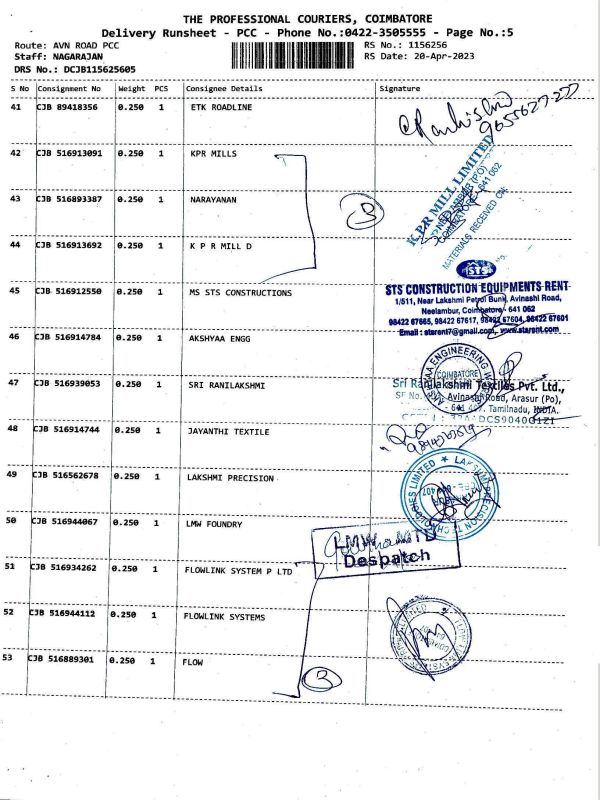 THE PROFESSIONAL COURIERS, COIMBATORE
Delivery Runsheet - PCC - Phone No.:0422-3505555 - Page No.:5
Route: AVN ROAD PCC RS No.: 1156256
Staff: NAGARAJAN RS Date: 20-Apr-2023
DRS No.: DCJB115625605
S No Consignment No Weight PCS Consignee Details Signature
41 CJB 89418356 0.250 1 ETK ROADLINE
9655627277
42 CJB 516913091 0.250 1 KPR MILLS
K.P.R MILL LIMITED
641 062
MATERIALS RECEIVED ON
43 CJB 516893387 0.250 1 NARAYANAN
3
44 CJB 516913692 0.250 1 K P R MILL D
STS
45 CJB 516912550 0.250 1 MS STS CONSTRUCTIONS
STS CONSTRUCTION EQUIPMENTS RENT
1/511, Near Lakshmi Petrol Bunk, Avinashi Road,
Neelambur, Coimbatore - 641 062
98422 67665, 98422 67617, 98422 67604, 98422 67601
Email : starent7@gmail.com, www.starent.com
46 CJB 516914784 0.250 1 AKSHYAA ENGG
ENGINEERING
COIMBATORE
47 CJB 516939053 0.250 1 SRI RANILAKSHMI
Sri Ranilakshmi Textiles Pvt. Ltd.,
Avinashi Road, Arasur (Po),
Tamilnadu, INDIA.
48 CJB 516914744 0.250 1 JAYANTHI TEXTILE
49 CJB 516562678 0.250 1 LAKSHMI PRECISION
LAKSHMI PRECISION TECHNOLOGIES LIMITED
50 CJB 516944067 0.250 1 LMW FOUNDRY
LMW LTD
Despatch
51 CJB 516934262 0.250 1 FLOWLINK SYSTEM P LTD
52 CJB 516944112 0.250 1 FLOWLINK SYSTEMS
53 CJB 516889301 0.250 1 FLOW
3